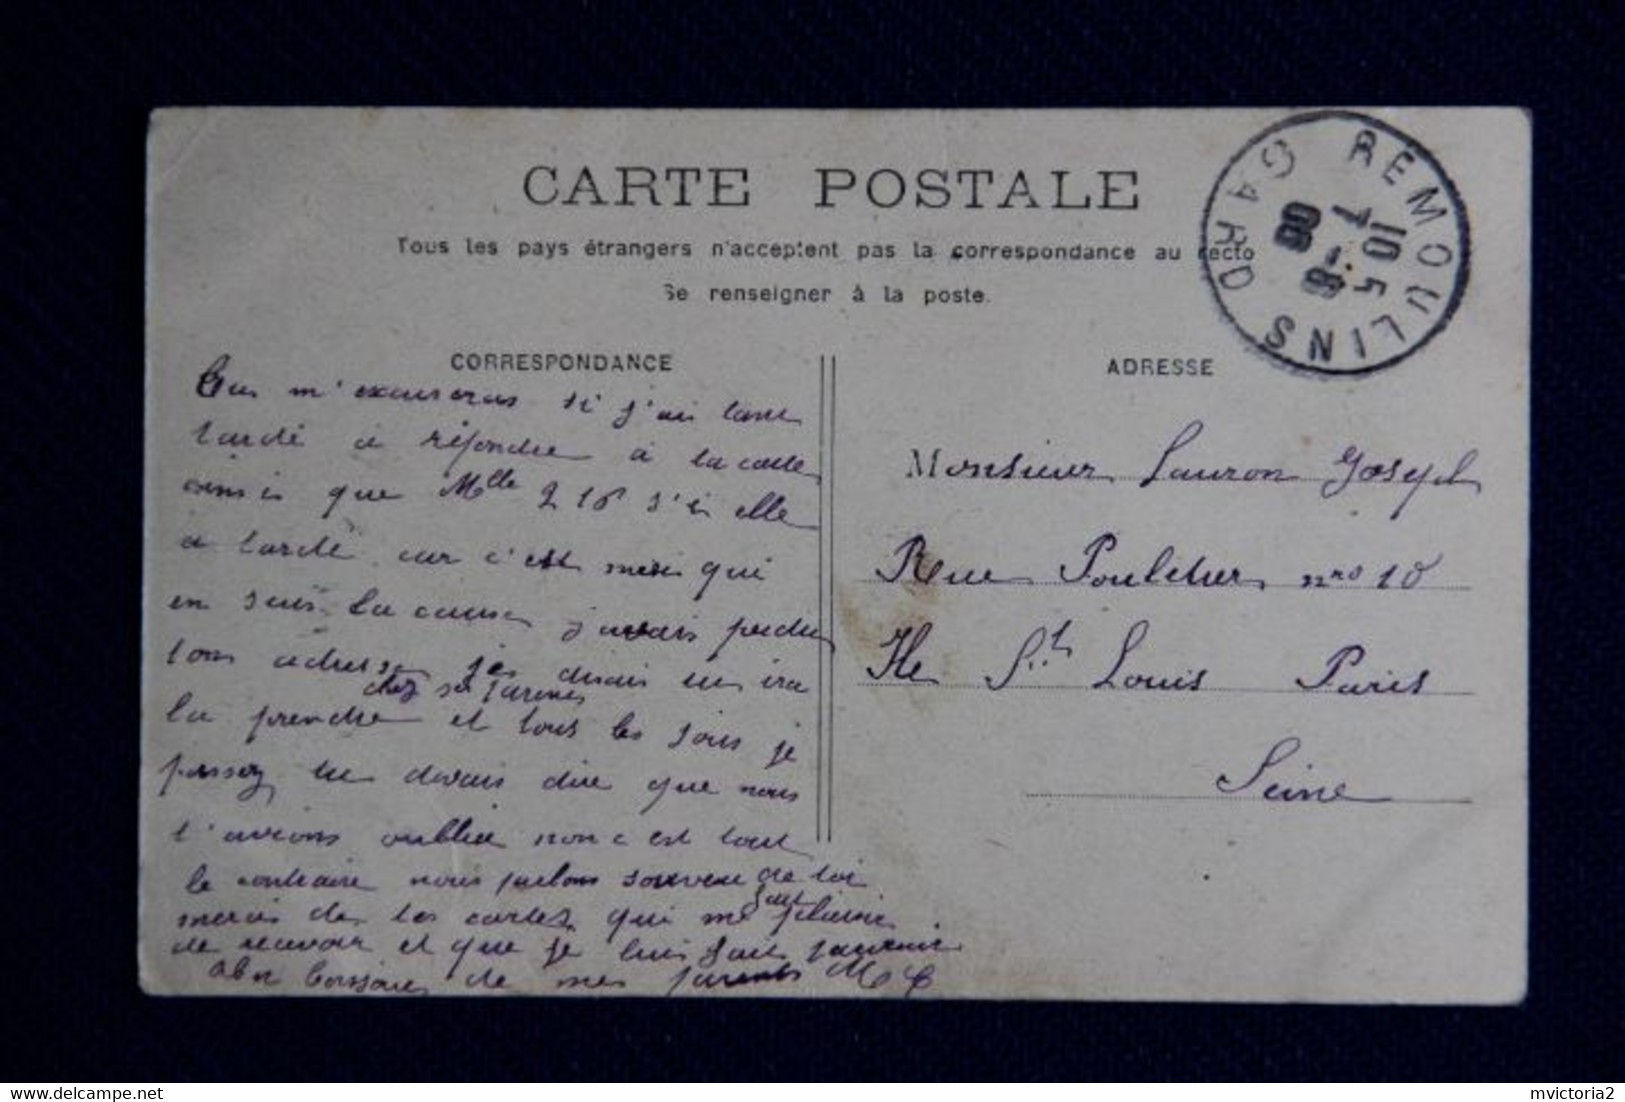 CARTE POSTALE
Tous les pays étrangers n'acceptent pas la correspondance au recto
Se renseigner à la poste.
REMOULINS
GARD
10 5
7
CORRESPONDANCE
ADRESSE
m'excuseras si j'ai tant
tardé à répondre à ta carte
que Mlle si elle
a tardé car c'est moi qui
en suis la cause j'avais perdu
ton adresse je disais un ira
chez ses
la prendre et tous les jours je
tu devais dire que nous
t'avions oublié non c est tout
le contraire nous parlons souvent de toi
merci de tes cartes qui me font plaisir
de recevoir et que je lui fait
de mes parents M C
Monsieur Lauron Joseph
Rue Poulletier nro 10
Ile St Louis Paris
Seine
mvictoria2